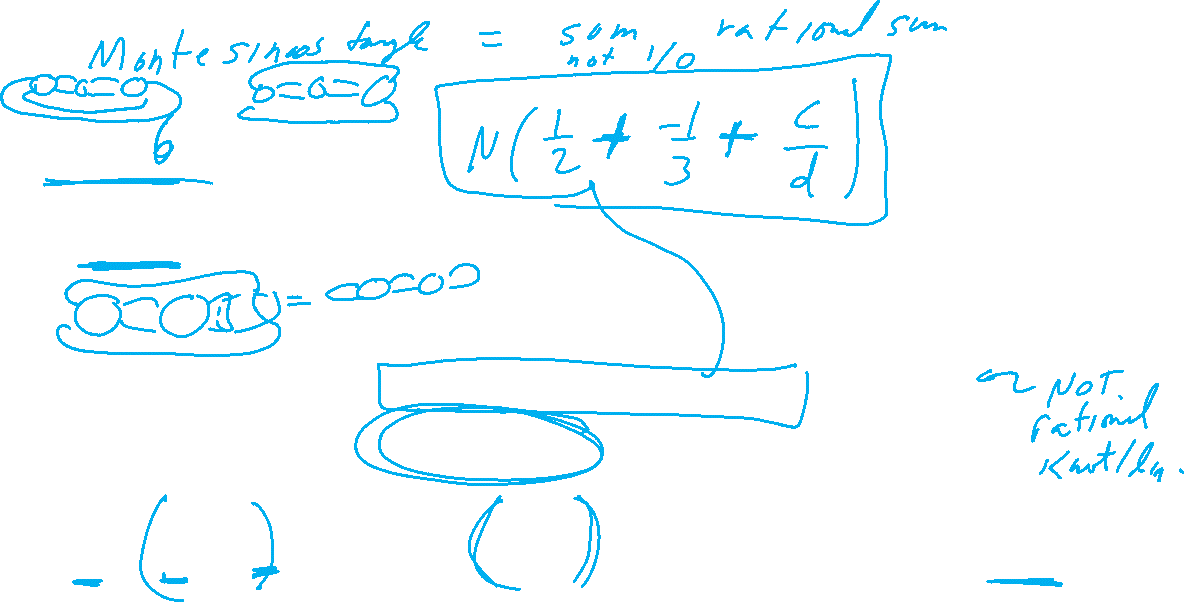 Montesinos tangle = sum rational sum
not 1/0
N(1/2 + -1/3 + c/d)
=
NOT.
rational
knot/